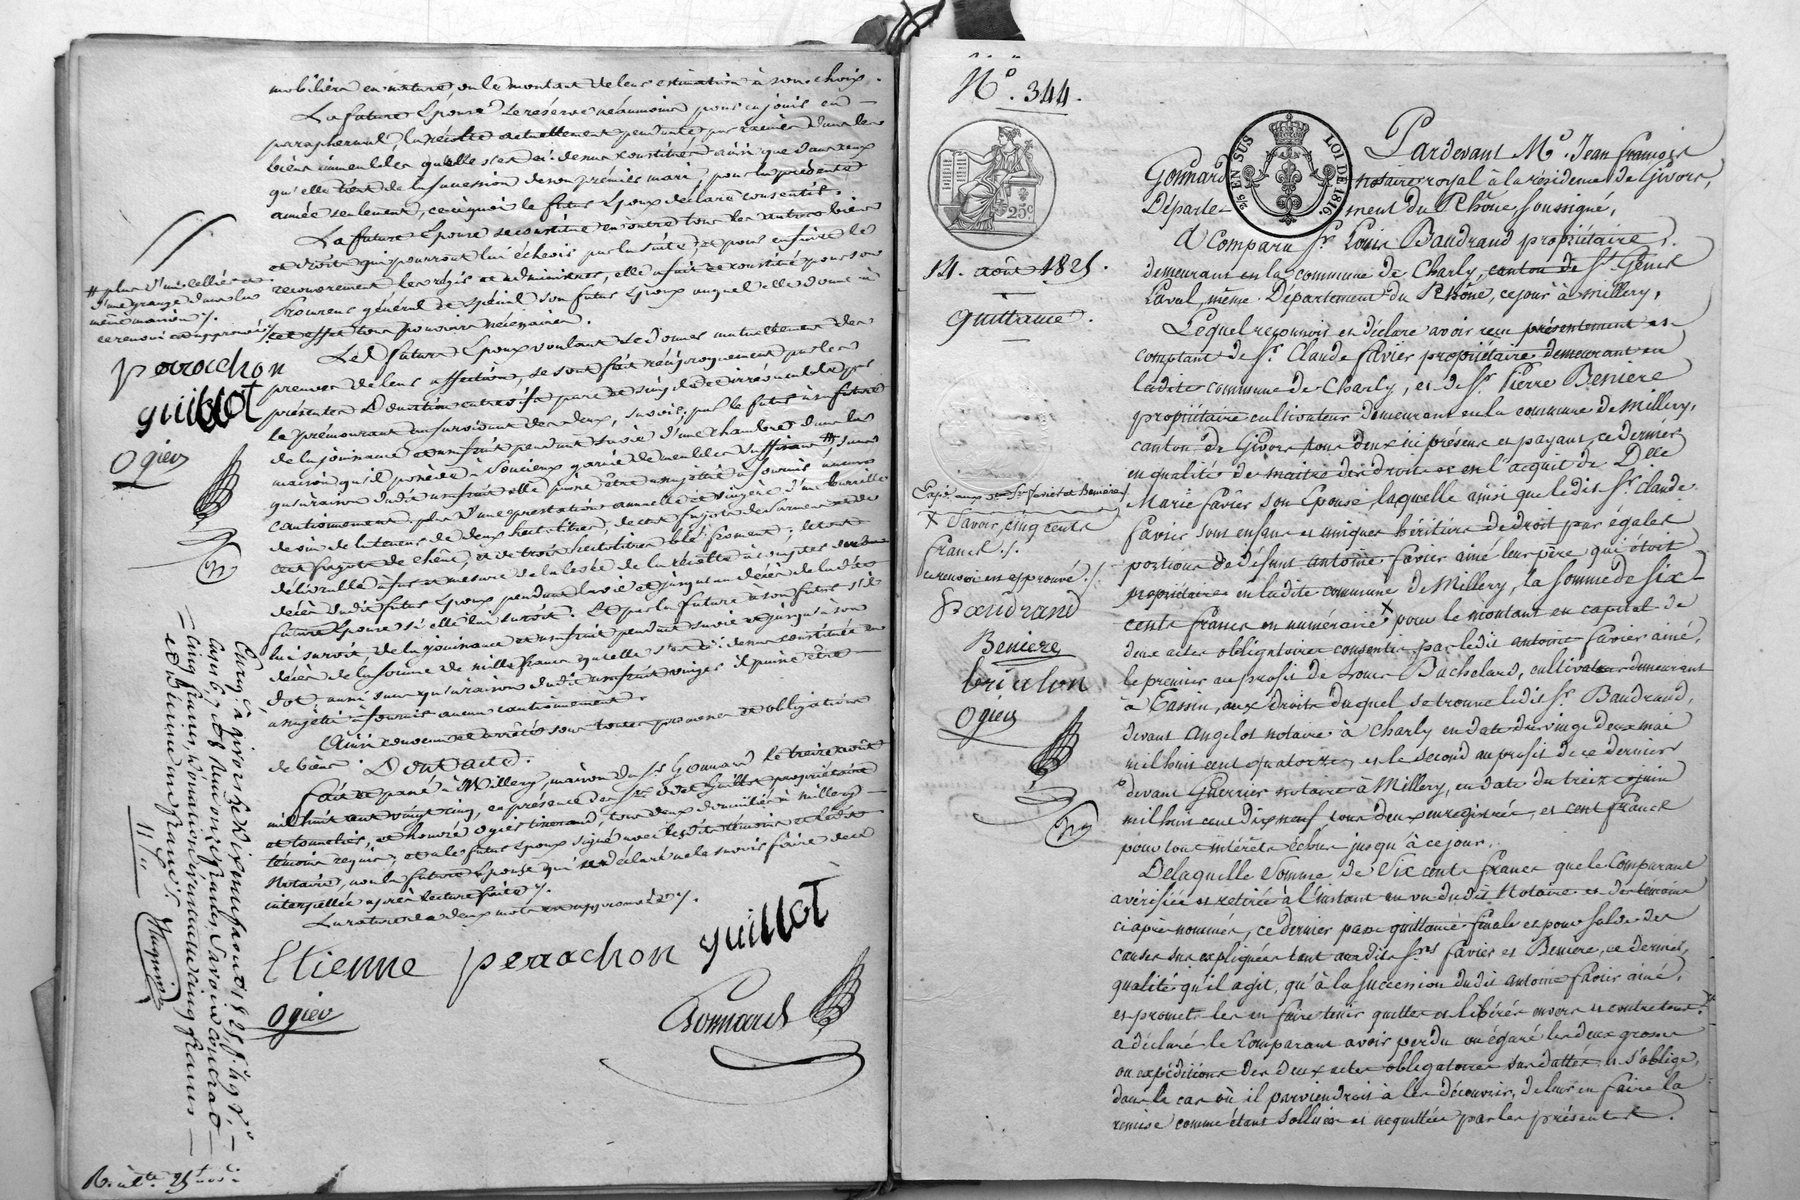 mobiliers en nature, ou le montant de leur estimation à son choix.
La future Epouse se réserve néanmoins pour en jouir en
paraphernal, la récolte actuellement pendante par racines dans les
biens immeubles qu'elle s'est ci-dessus constitués ainsi que dans ceux
qu'elle tient de la succession de son premier mari, pour la présente
année seulement, ce à quoi le futur Epoux déclare consentir.
La future Epouse se constitue en outre tous les autres biens
et droits qui pourront lui échoir par la suite, et pour en faire le
recouvrement les régir et administrer, elle a fait et constitué pour son
Procureur général et spécial son futur Epoux auquel elle donne à
cet effet tous pouvoirs nécessaires.
Les futurs Epoux voulant se donner mutuellement des
preuves de leur affection, se sont fait réciproquement par les
présentes Donation entre vifs pure et simple et irrévocable par
le prémourant au survivant des deux, savoir; par le futur à sa future
de la jouissance et usufruit pendant sa vie d'une chambre dans la
maison qu'il possède à Soucieux garnie de meubles suffisans #, sans
qu'à raison dudit usufruit elle puisse être assujettie à fournir aucun
cautionnement, plus d'une prestation annuelle et viagère d'une barrille
de vin de la teneur de deux hectolitres, de cent fagots de sarment et de
cent fagots de chêne, et de trois hectolitres blé froment; le tout
délivrable au fur et mesure de la levée de la récolte à compter du
décès dudit futur Epoux pendant la vie et jusqu'au décès de ladite
future Epouse si elle lui survit. Et par la future à son futur s'il
lui survit de la jouissance et usufruit pendant sa vie et jusqu'à son
décès de la somme de mille francs qu'elle s'est ci-dessus constituée en
dot, aussi sans qu'à raison dudit usufruit viager il puisse être
assujetti à fournir aucun cautionnement.
Ainsi convenu et arrêté sous toutes promesses et obligations
de biens. Dont acte.
Fait et passé à Millery, maison du Sr. Gonnard le treize août
mil huit cent vingt cinq, en présence des Srs.
et tonnelier, et honoré Ogier tisserand, tous deux domiciliés à Millery
témoins requis, et a le futur Epoux signé avec lesdits témoins et ledit
Notaire, non la future Epouse qui a déclaré ne le savoir faire de ce
interpellée après lecture faite ./.
La rature de deux mots est approuvée ./.
Etienne perrachon guillot
Ogier
Gonnard
# plus d'un cellier et
d'une grange dans la
même maison ./.
ce renvoi est approuvé ./.
perrachon
guillot
Ogier
Enreg.é à Givors le dix neuf août 1825, f.° 49 v.°
cinq francs, donation éventuelle cinq francs
11 "
N°. 344.
25 EN SUS LOI DE 1816.
25c
14. août 1825.
Quittance.
Pardevant Me. Jean François
Gonnard notaire royal à la résidence de Givors,
Départe-ment du Rhône soussigné,
A Comparu Sr. Louis Baudrand propriétaire
demeurant en la commune de Charly, canton de St. Genis
Laval, même Département du Rhône, ce jour à Millery,
Lequel reconnoit et déclare avoir reçu présentement et
comptant de Sr. Claude Favier propriétaire demeurant en
ladite commune de Charly, et de Sr. Pierre Beniere
propriétaire cultivateur demeurant en la commune de Millery,
canton de Givors, tous deux ici présens et payant, ce dernier
en qualité de maitre des droits et en l'acquit de D.lle
Marie Favier son Epouse, laquelle ainsi que ledit Sr. Claude
Favier sont enfans et uniques héritiers de droit par égales
portions de défunt antoine Favier ainé leur père qui étoit
propriétaire en ladite commune de Millery, la somme de six
cents francs en numéraire X pour le montant en capital de
deux actes obligatoires consentis par ledit antoine Favier ainé,
le premier au profit de Louis Bachelard, cultivateur demeurant
à Tassin, aux droits duquel se trouve ledit Sr. Baudrand,
devant Angelot notaire à Charly en date du vingt deux mai
mil huit cent quatorze, et le second au profit de ce dernier
devant Guerrier notaire à Millery, en date du treize juin
mil huit cent dix neuf tous deux enregistrés, et cent francs
pour tous intérêts échus jusqu'à ce jour.
De laquelle somme de six cents francs que le Comparant
a vérifiée et retirée à l'instant en vu dudit Notaire et des témoins
ci après nommés, ce dernier passe quittance finale et pour solde des
causes sus expliquées tant auxdits Srs Favier et Beniere, ce dernier
qualité qu'il agit, qu'à la succession dudit antoine Favier ainé,
et promet les en faire tenir quittes et libérés envers et contre tous.
a déclaré le Comparant avoir perdu ou égaré les deux grosses
ou expéditions des deux actes obligatoires sus dattés, et s'oblige,
dans le cas où il parviendroit à les découvrir, de leur en faire la
remise comme étant solluës et acquittées par les présentes.
Payé aux dits Sr. Favier et Beniere
X Savoir, cinq cents
francs ./.
ce renvoi est approuvé ./.
Baudrand
Beniere
brialon
Ogier